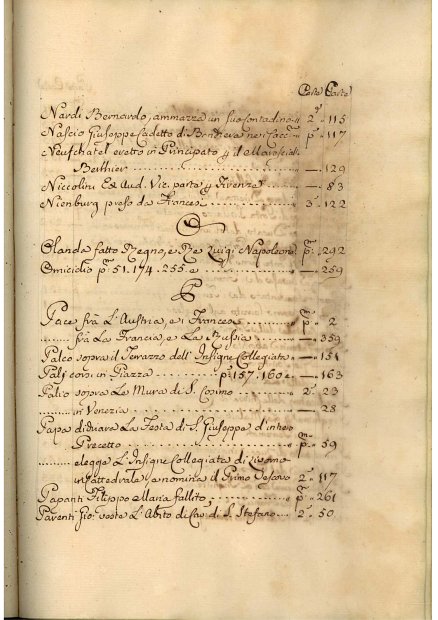 Parte Carte
Nardi Bernardo, ammazza un suo contadino " 2ª 115
Nascio Giuseppe Cadetto di Bandiera nei Cacc.ri p.ª 117
Neufchatel eretto in Principato p il Maresciall
Berthier — 129
Niccolini Ex Aud. Vic. parte p Firenze — 83
Nienburg preso da Francesi 3ª 122
O
Olanda fatto Regno, e Re Luigi Napoleone p.ª 292
Omicidio p.ª 51. 174. 255. e — 259
P
Pace frà L'Austria, e i Francesi p.ª 2
frà La Francia, e La Russia — 359
Palco sopra il Terrazzo dell'Insigne Collegiata — 154
Palj corsi in Piazza p.ª 157. 160 e — 163
Palio sopra Le Mura di S. Cosimo 2ª 23
in Venezia — 28
Papa dichiara La Festa di S. Giuseppe d'intero
Precetto p.ª 59
elegge L'Insigne Collegiata di Livorno
in Cattedrale, e nomina il Primo Vescovo 2ª 117
Papanti Filippo Maria fallito p.ª 261
Parenti Gio: veste L'Abito di Cav: di S. Stefano 2ª 50